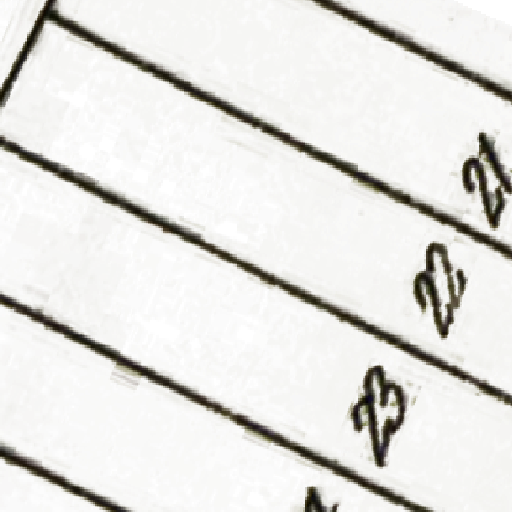 21
22
23